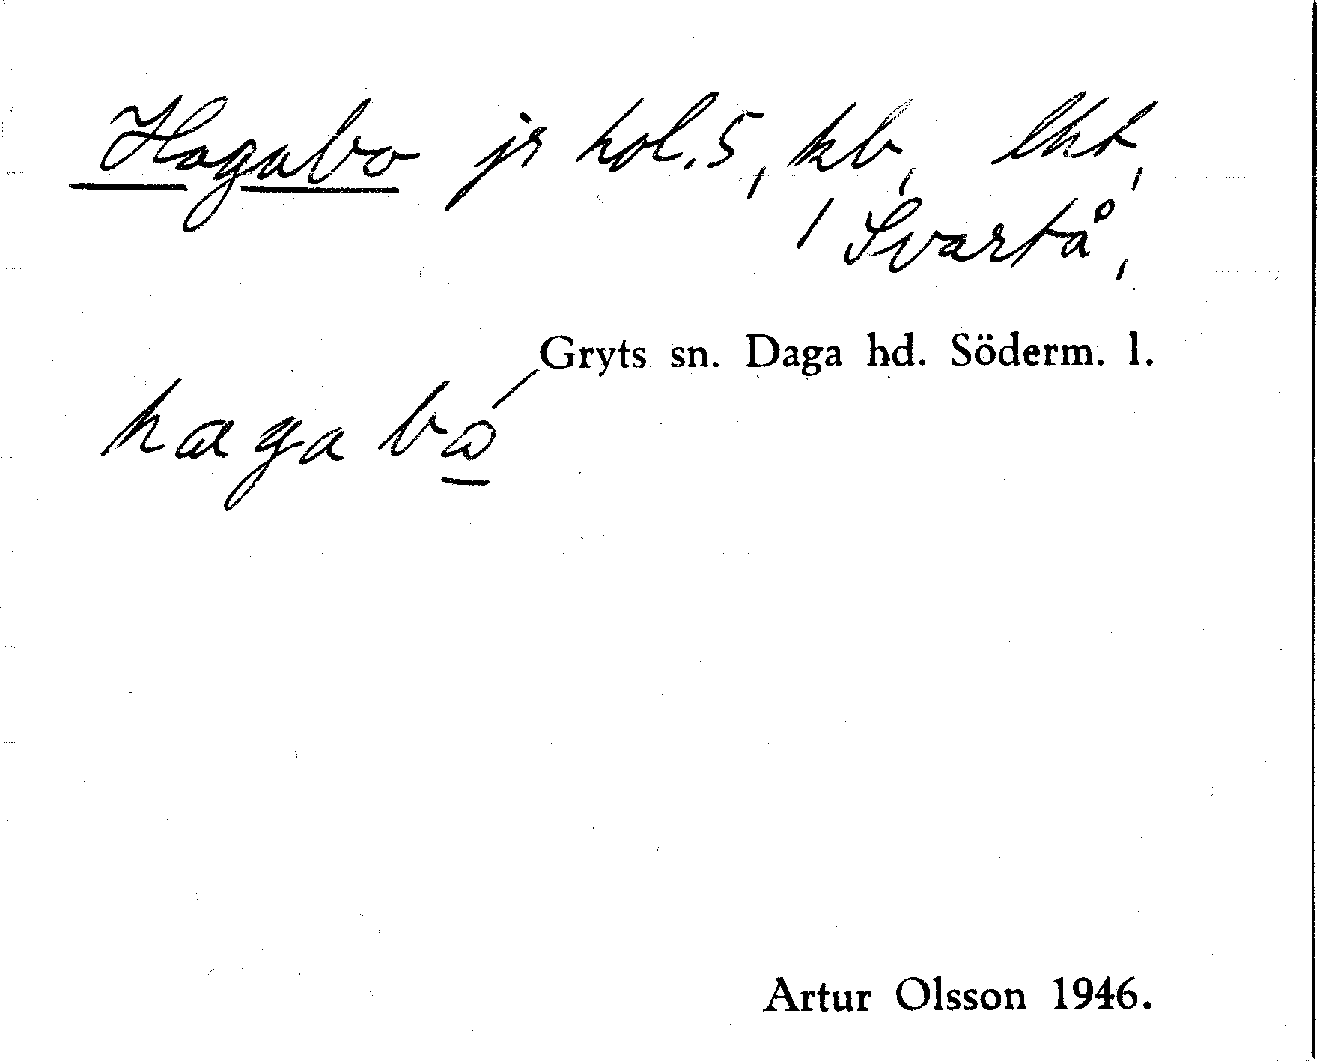 Hagabo jr hol. 5, kb, lht,
/ Svartå,
Gryts sn. Daga hd. Söderm. l.
haga bω
Artur Olsson 1946.